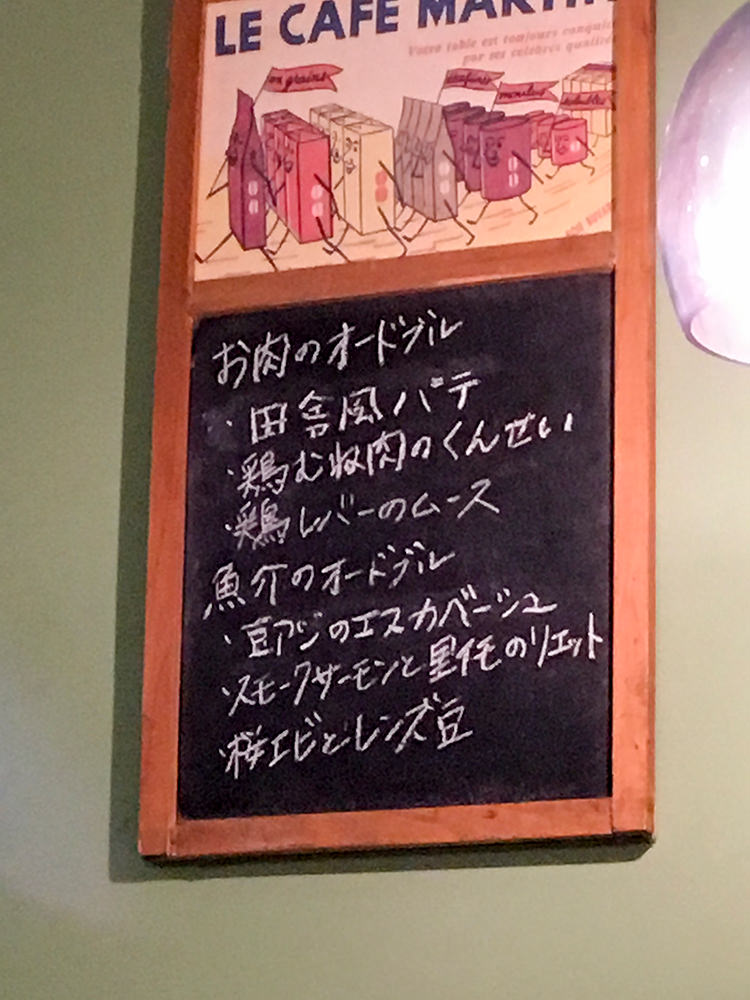 LE CAFE MARTIN
Votre table est toujours conquise
par ses célèbres qualités
en grains
moulus
solubles
お肉のオードブル
・田舎風パテ
・鶏むね肉のくんせい
・鶏レバーのムース
魚介のオードブル
・豆アジのエスカベーシュ
・スモークサーモンと里芋のリエット
・桜エビとレンズ豆